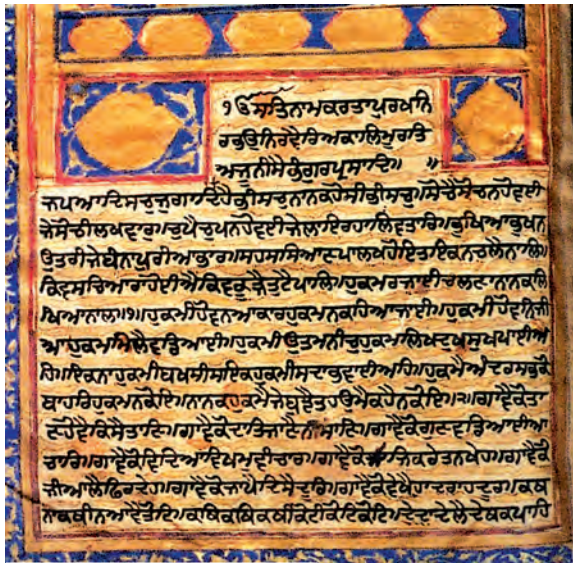 ੴਸਤਿਨਾਮਕਰਤਾਪੁਰਖਨਿ
ਰਭਉਨਿਰਵੈਰਿਅਕਾਲਿਮੂਰਤਿ
ਅਜੂਨੀਸੈਭੰਗੁਰਪ੍ਰਸਾਦਿ॥ ॥
ਜਪਆਦਿਸਚੁਜੁਗਾਦਿਹੈਭੀਸਚੁਨਾਨਕਹੋਸੀਭੀਸਚੁ॥ਸੋਚੈਸੋਚਨਹੋਵਈ
ਜੇਸੋਚੀਲਖਵਾਰ॥ਚੁਪੈਚੁਪਨਹੋਵਈਜੇਲਾਇਰਹਾਲਿਵਤਾਰਿ॥ਭੁਖਿਆਭੁਖਨ
ਉਤਰੀਜੇਬੰਨਪੁਰੀਆਭਾਰ॥ਸਹਸਸਿਆਣਪਾਲਖਹੋਇਤਇਕਨਚਲੈਨਾਲਿ॥
ਕਿਵਸਚਿਆਰਾਹੋਈਐਕਿਵਕੂੜੈਤੁਟੈਪਾਲਿ॥ਹੁਕਮਰਜਾਈਚਲਣਾਨਾਨਕਲਿ
ਖਿਆਨਾਲ॥੧॥ਹੁਕਮੀਹੋਵਨਆਕਾਰਹੁਕਮਨਕਹਿਆਜਾਈ॥ਹੁਕਮੀਹੋਵਨਿਜੀ
ਆਹੁਕਮਮਿਲੈਵਡਿਆਈ॥ਹੁਕਮੀਉਤਮਨੀਚੁਹੁਕਮਲਿਖਦੁਖਸੁਖਪਾਈਅ
ਹਿ॥ਇਕਨਾਹੁਕਮੀਬਖਸੀਸਇਕਹੁਕਮੀਸਦਾਭਵਾਈਅਹਿ॥ਹੁਕਮੈਅੰਦਰਸਭਕੋ
ਬਾਹਰਿਹੁਕਮਨਕੋਇ॥ਨਾਨਕਹੁਕਮੈਜੇਬੁਝੈਤਹਉਮੈਕਹੈਨਕੋਇ॥੨॥ਗਾਵੈਕੋਤਾ
ਣਹੋਵੈਕਿਸੈਤਾਣਿ॥ਗਾਵੈਕੋਦਾਤਿਜਾਣੈਨੀਸਾਣਿ॥ਗਾਵੈਕੋਗੁਣਵਡਿਆਈਆ
ਚਾਰਿ॥ਗਾਵੈਕੋਵਿਦਿਆਵਿਖਮੁਵੀਚਾਰ॥ਗਾਵੈਕੋਸਾਜਿਕਰੇਤਨਖੇਹ॥ਗਾਵੈਕੋ
ਜੀਆਲੈਫਿਰਦੇਹ॥ਗਾਵੈਕੋਜਾਪੈਦਿਸੈਦੂਰਿ॥ਗਾਵੈਕੋਵੇਖੈਹਾਦਰਾਹਦੂਰ॥ਕਥ
ਨਾਕਥੀਨਆਵੈਤੋਟਿ॥ਕਥਿਕਥਿਕਥੀਕੋਟੀਕੋਟਿਕੋਟਿ॥ਦੇਦਾਦੇਲੈਦੇਥਕਪਾਹਿ